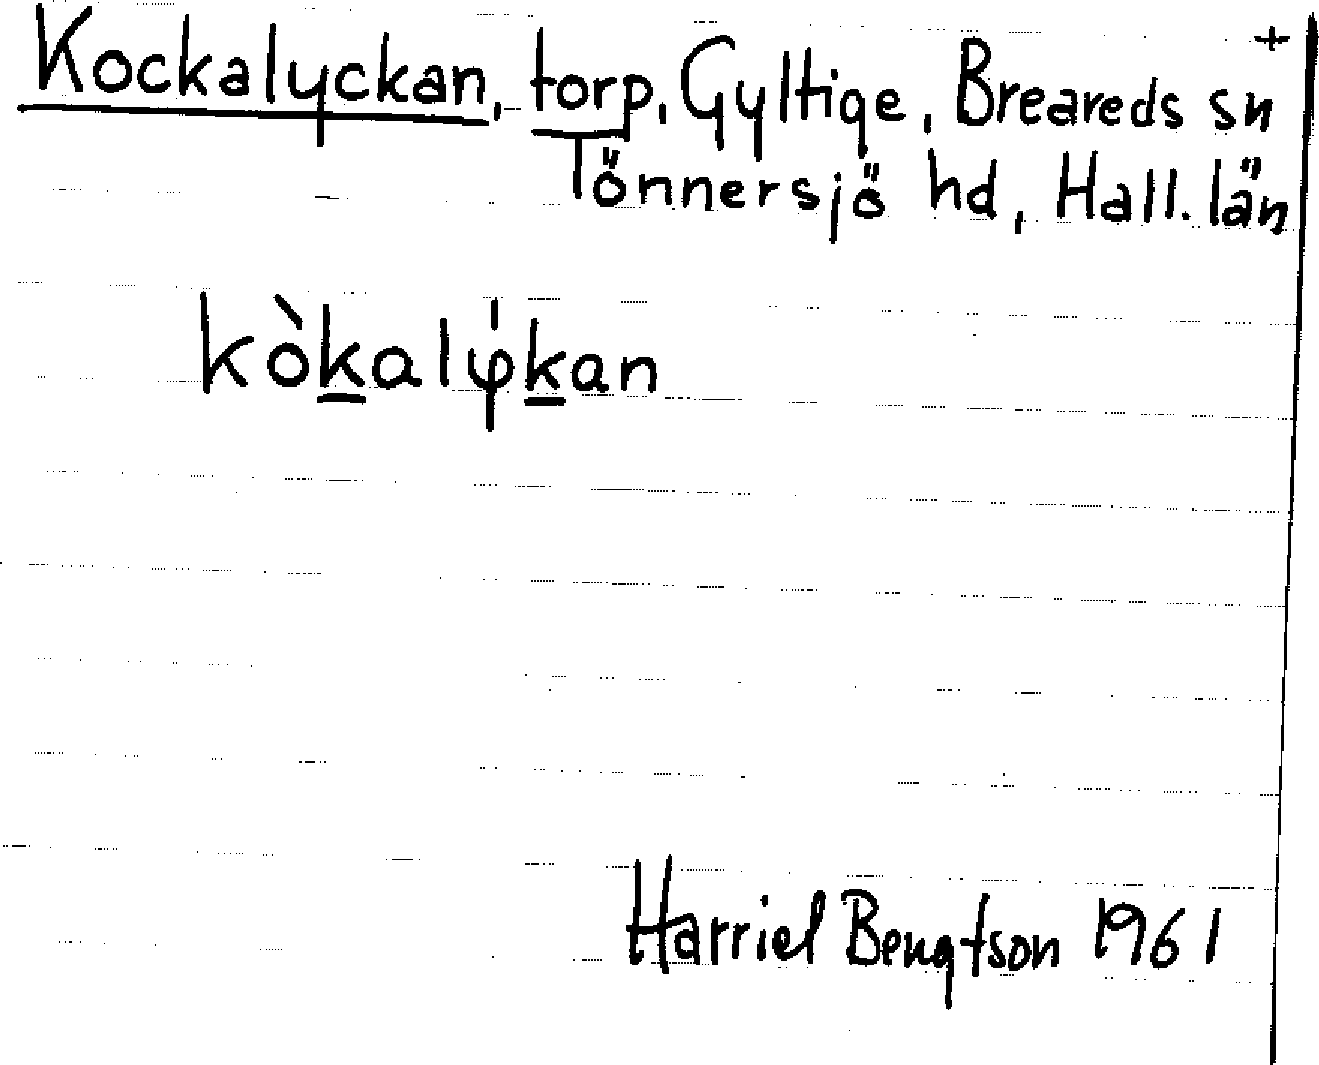 Kockalyckan, torp, Gyltige, Breareds sn +
Tönnersjö hd, Hall. län
kòkalýkan
Harriel Bengtson 1961